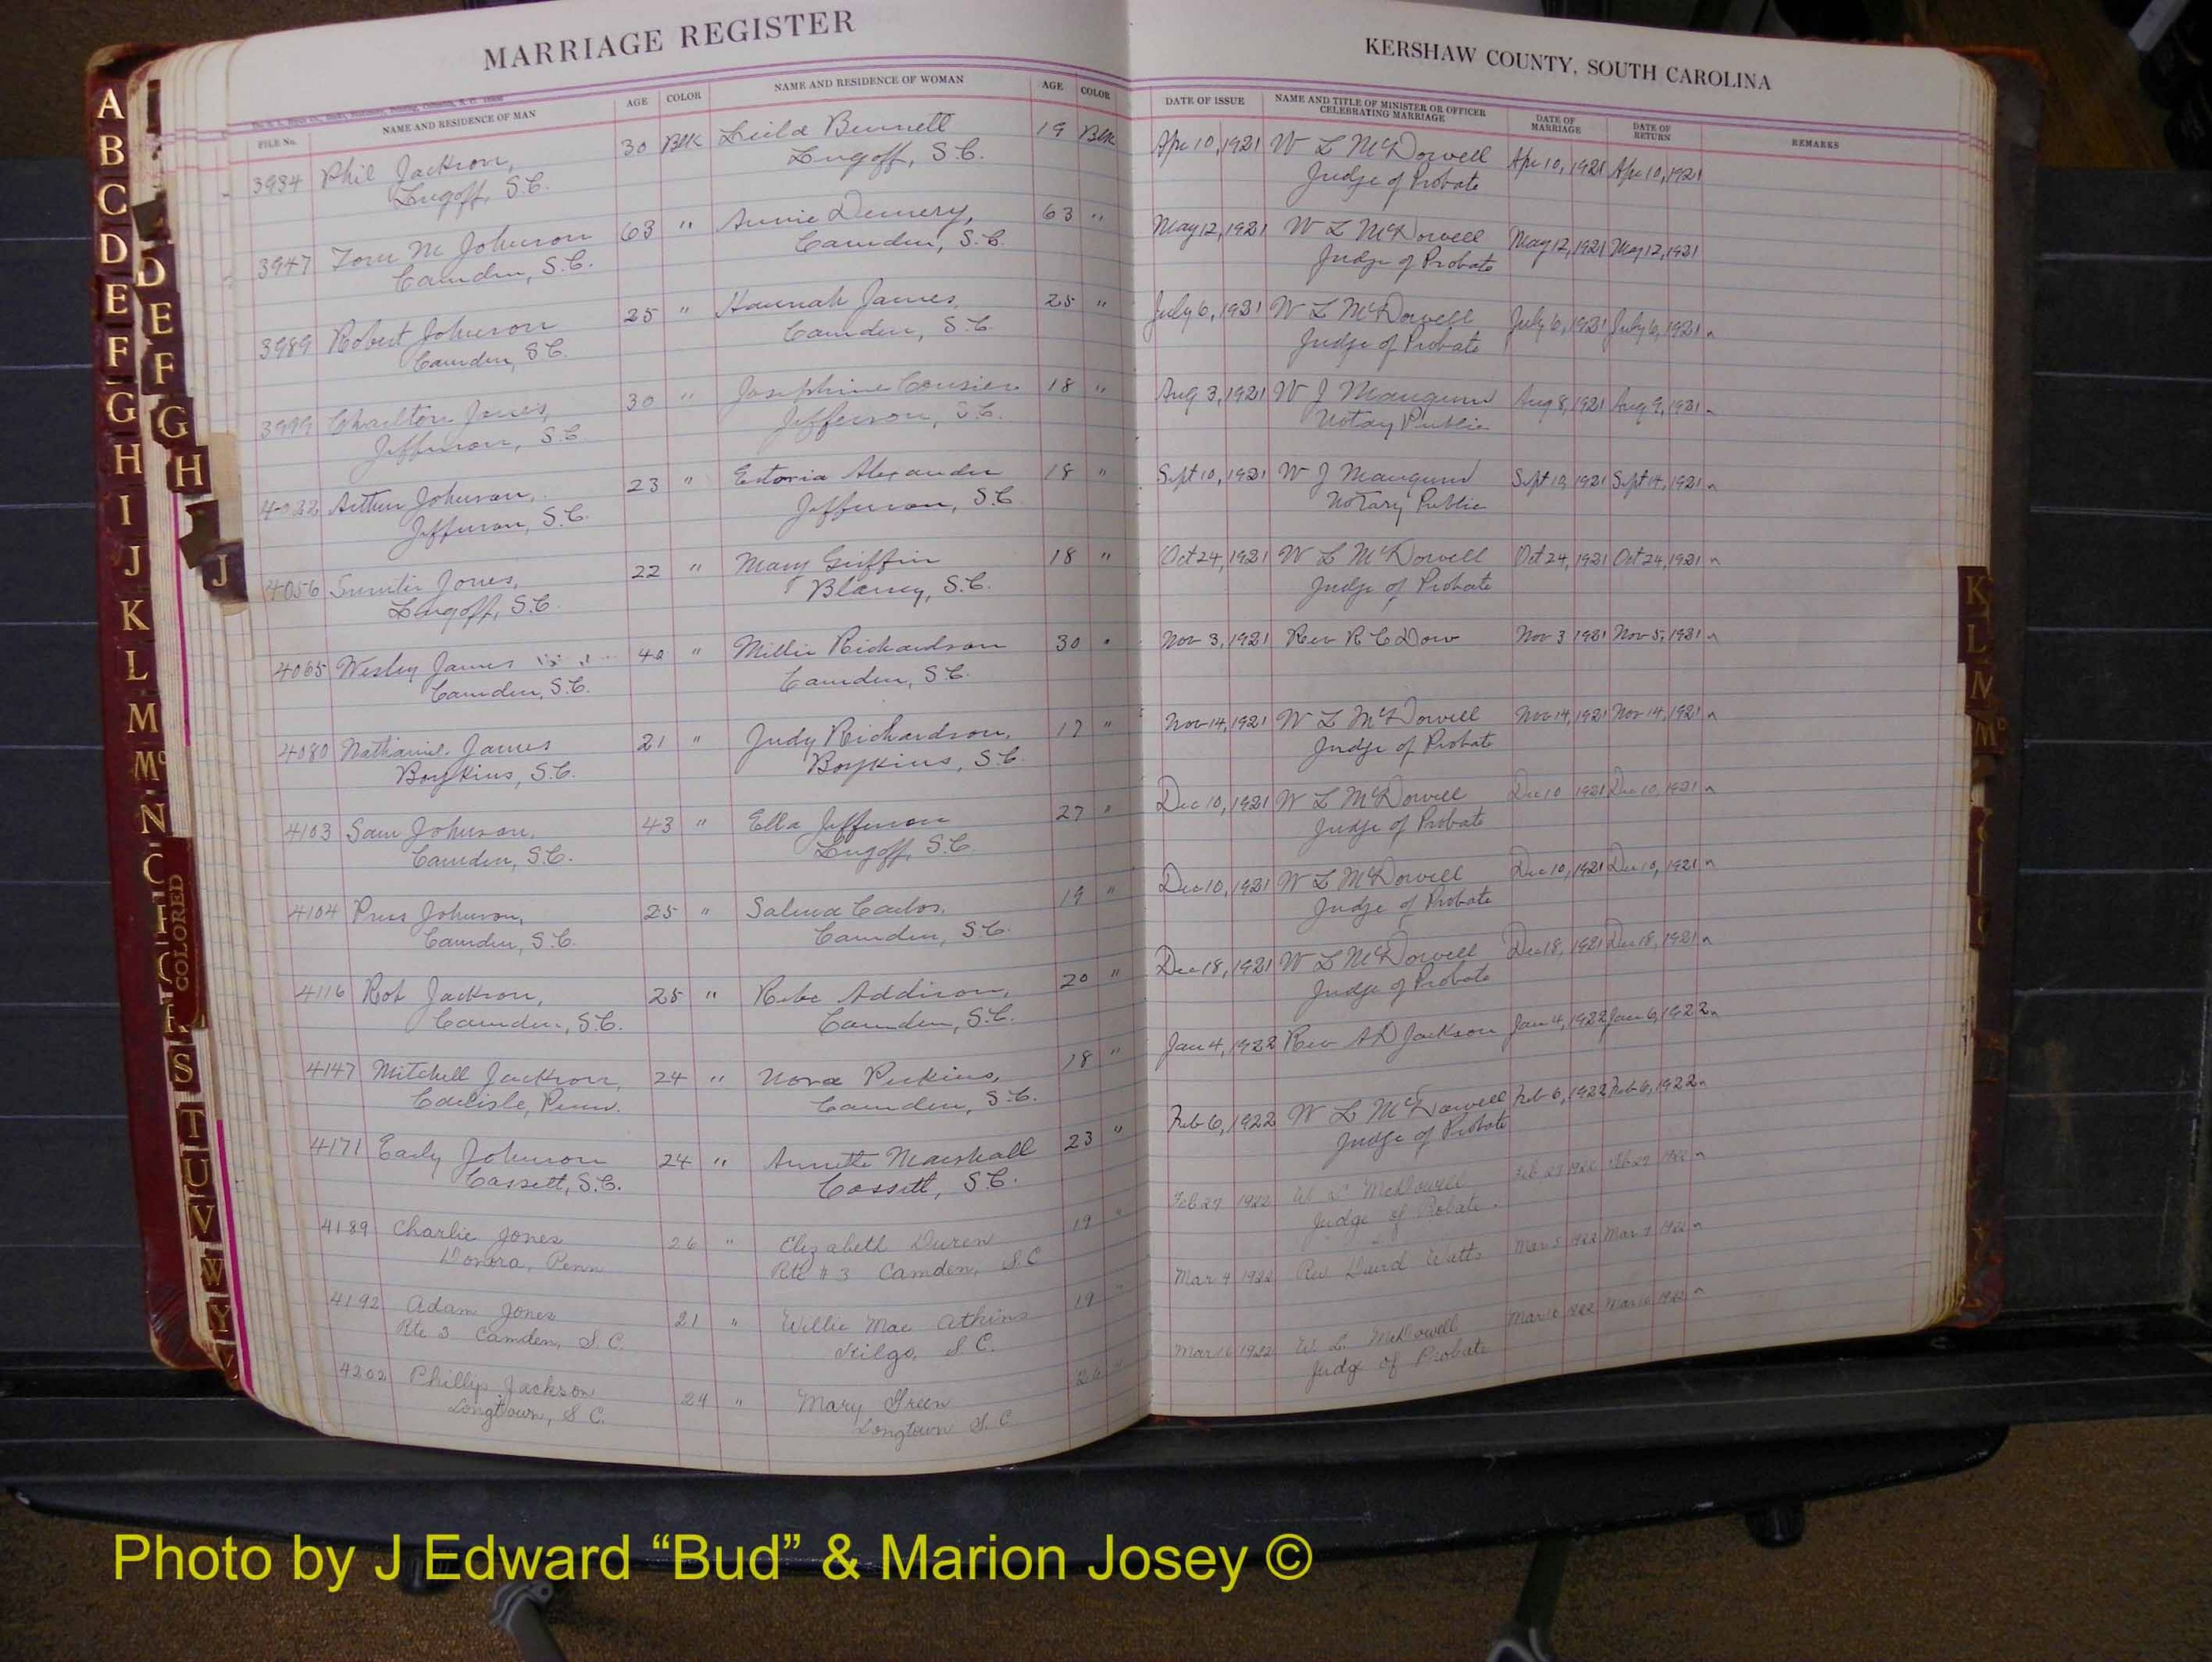 MARRIAGE REGISTER
KERSHAW COUNTY, SOUTH CAROLINA
FILE No. NAME AND RESIDENCE OF MAN AGE COLOR NAME AND RESIDENCE OF WOMAN AGE COLOR DATE OF ISSUE NAME AND TITLE OF MINISTER OR OFFICER CELEBRATING MARRIAGE DATE OF MARRIAGE DATE OF RETURN REMARKS
3934 Phil Jackson, 30 Blk Bennell 19 Blk Apr 10, 1921 W L McDowell Apr 10, 1921 Apr 10, 1921
Lugoff, S.C. Lugoff, S.C. Judge of Probate
3947 Tom M Johnson 63 " Annie Demery, 63 " May 12, 1921 W L McDowell May 12, 1921 May 12, 1921
Camden, S.C. Camden, S.C. Judge of Probate
3989 Robert Johnson 25 " Hannah James, 25 " July 6, 1921 W L McDowell July 6, 1921 July 6, 1921
Camden, S.C. Camden, S.C. Judge of Probate
3999 Charlton Jones, 30 " Josephine 18 " Aug 3, 1921 W J Mangum Aug 8, 1921 Aug 9, 1921
Jefferson, S.C. Jefferson, S.C. Notary Public
4022 Arthur Johnson, 23 " Estoria Alexander 18 " Sept 10, 1921 W J Mangum Sept 1921 Sept 14, 1921
Jefferson, S.C. Jefferson, S.C. Notary Public
4056 Sumter Jones, 22 " Mary Griffin 18 " Oct 24, 1921 W L McDowell Oct 24, 1921 Oct 24, 1921
Lugoff, S.C. Blaney, S.C. Judge of Probate
4065 Wesley James 40 " Millie Richardson 30 " Nov 3, 1921 Rev R C Dow Nov 3 1921 Nov 5, 1921
Camden, S.C. Camden, S.C.
4080 Nathaniel James 21 " Judy Richardson, 17 " Nov 14, 1921 W L McDowell Nov 14, 1921 Nov 14, 1921
Boykins, S.C. Boykins, S.C. Judge of Probate
4103 Sam Johnson, 43 " Ella Jefferson 27 " Dec 10, 1921 W L McDowell Dec 10 1921 Dec 10, 1921
Camden, S.C. Lugoff, S.C. Judge of Probate
4104 Press Johnson, 25 " Salena Carlos, 19 " Dec 10, 1921 W L McDowell Dec 10, 1921 Dec 10, 1921
Camden, S.C. Camden, S.C. Judge of Probate
4116 Rob Jackson, 25 " Addison, 20 " Dec 18, 1921 W L McDowell Dec 18, 1921 Dec 18, 1921
Camden, S.C. Camden, S.C. Judge of Probate
4147 Mitchell Jackson, 24 " Nora Perkins, 18 " Jan 4, 1922 Rev A D Jackson Jan 4, 1922 Jan 6, 1922
Carlisle, Penn. Camden, S.C.
4171 Early Johnson 24 " Annette Marshall 23 " Feb 6, 1922 W L McDowell Feb 6, 1922 Feb 6, 1922
Cassett, S.C. Cassett, S.C. Judge of Probate
4189 Charlie Jones 26 " Elizabeth Duren 19 " Feb 27 1922 W L McDowell Feb 27 1922 Feb 27 1922
Donora, Penn Rte # 3 Camden, S.C Judge of Probate.
4192 Adam Jones 21 " Willie Mae Atkins 19 " Mar 4 1922 Rev David Watts Mar 5 1922 Mar 7 1922
Rte 3 Camden, S.C. Kilgo, S.C.
4202 Phillip Jackson 24 " Mary Green " Mar 16 1922 W. L. McDowell Mar 16 1922 Mar 16 1922
Longtown, S.C. Longtown S.C. Judge of Probate
A
B
C
D
E
F
G
H
I
J
K
L
M
Mc
N
S
T
U
V
W
Y
D
E
F
G
H
J
COLORED
K
L
M
Mc
Photo by J Edward “Bud” & Marion Josey ©